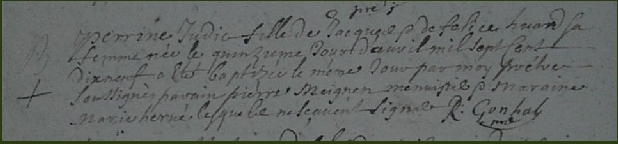 perrine Judic fille de Jacques & de felice huard sa
femme née le quinzieme Jour d'avril mil sept cent
Dixneuf a été baptizée le même Jour par moy prêtre
soussigné parain pierre Meignen menuisier & maraine
Marie hervé lesquels ne scavent signer P: Gonhal